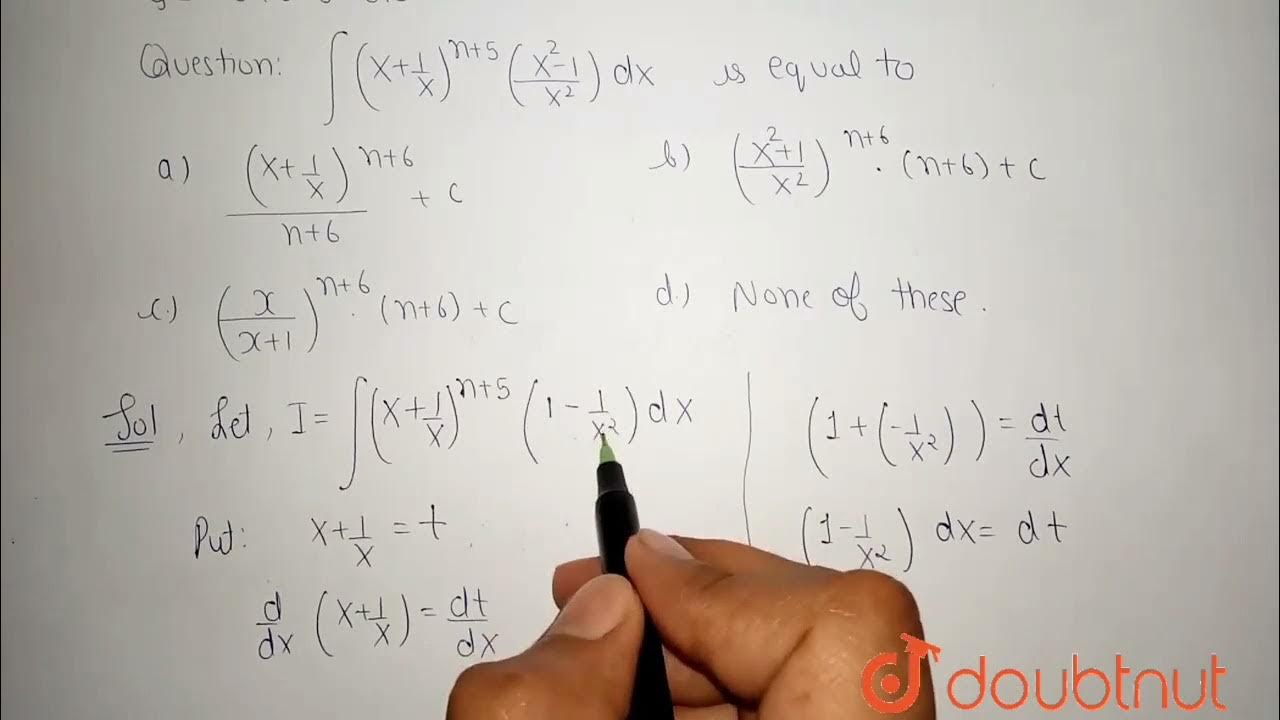 Question: ∫ (x+1/x)^(n+5) ((x²-1)/x²) dx is equal to
a) (x+1/x)^(n+6)/(n+6) + c
b) ((x²+1)/x²)^(n+6) . (n+6) + c
c.) (x/(x+1))^(n+6) . (n+6) + c
d.) None of these.
Sol, Let, I = ∫ (x+1/x)^(n+5) (1 - 1/x²) dx
Put: x+1/x = t
d/dx (x+1/x) = dt/dx
(1+(-1/x²)) = dt/dx
(1-1/x²) dx = dt
doubtnut